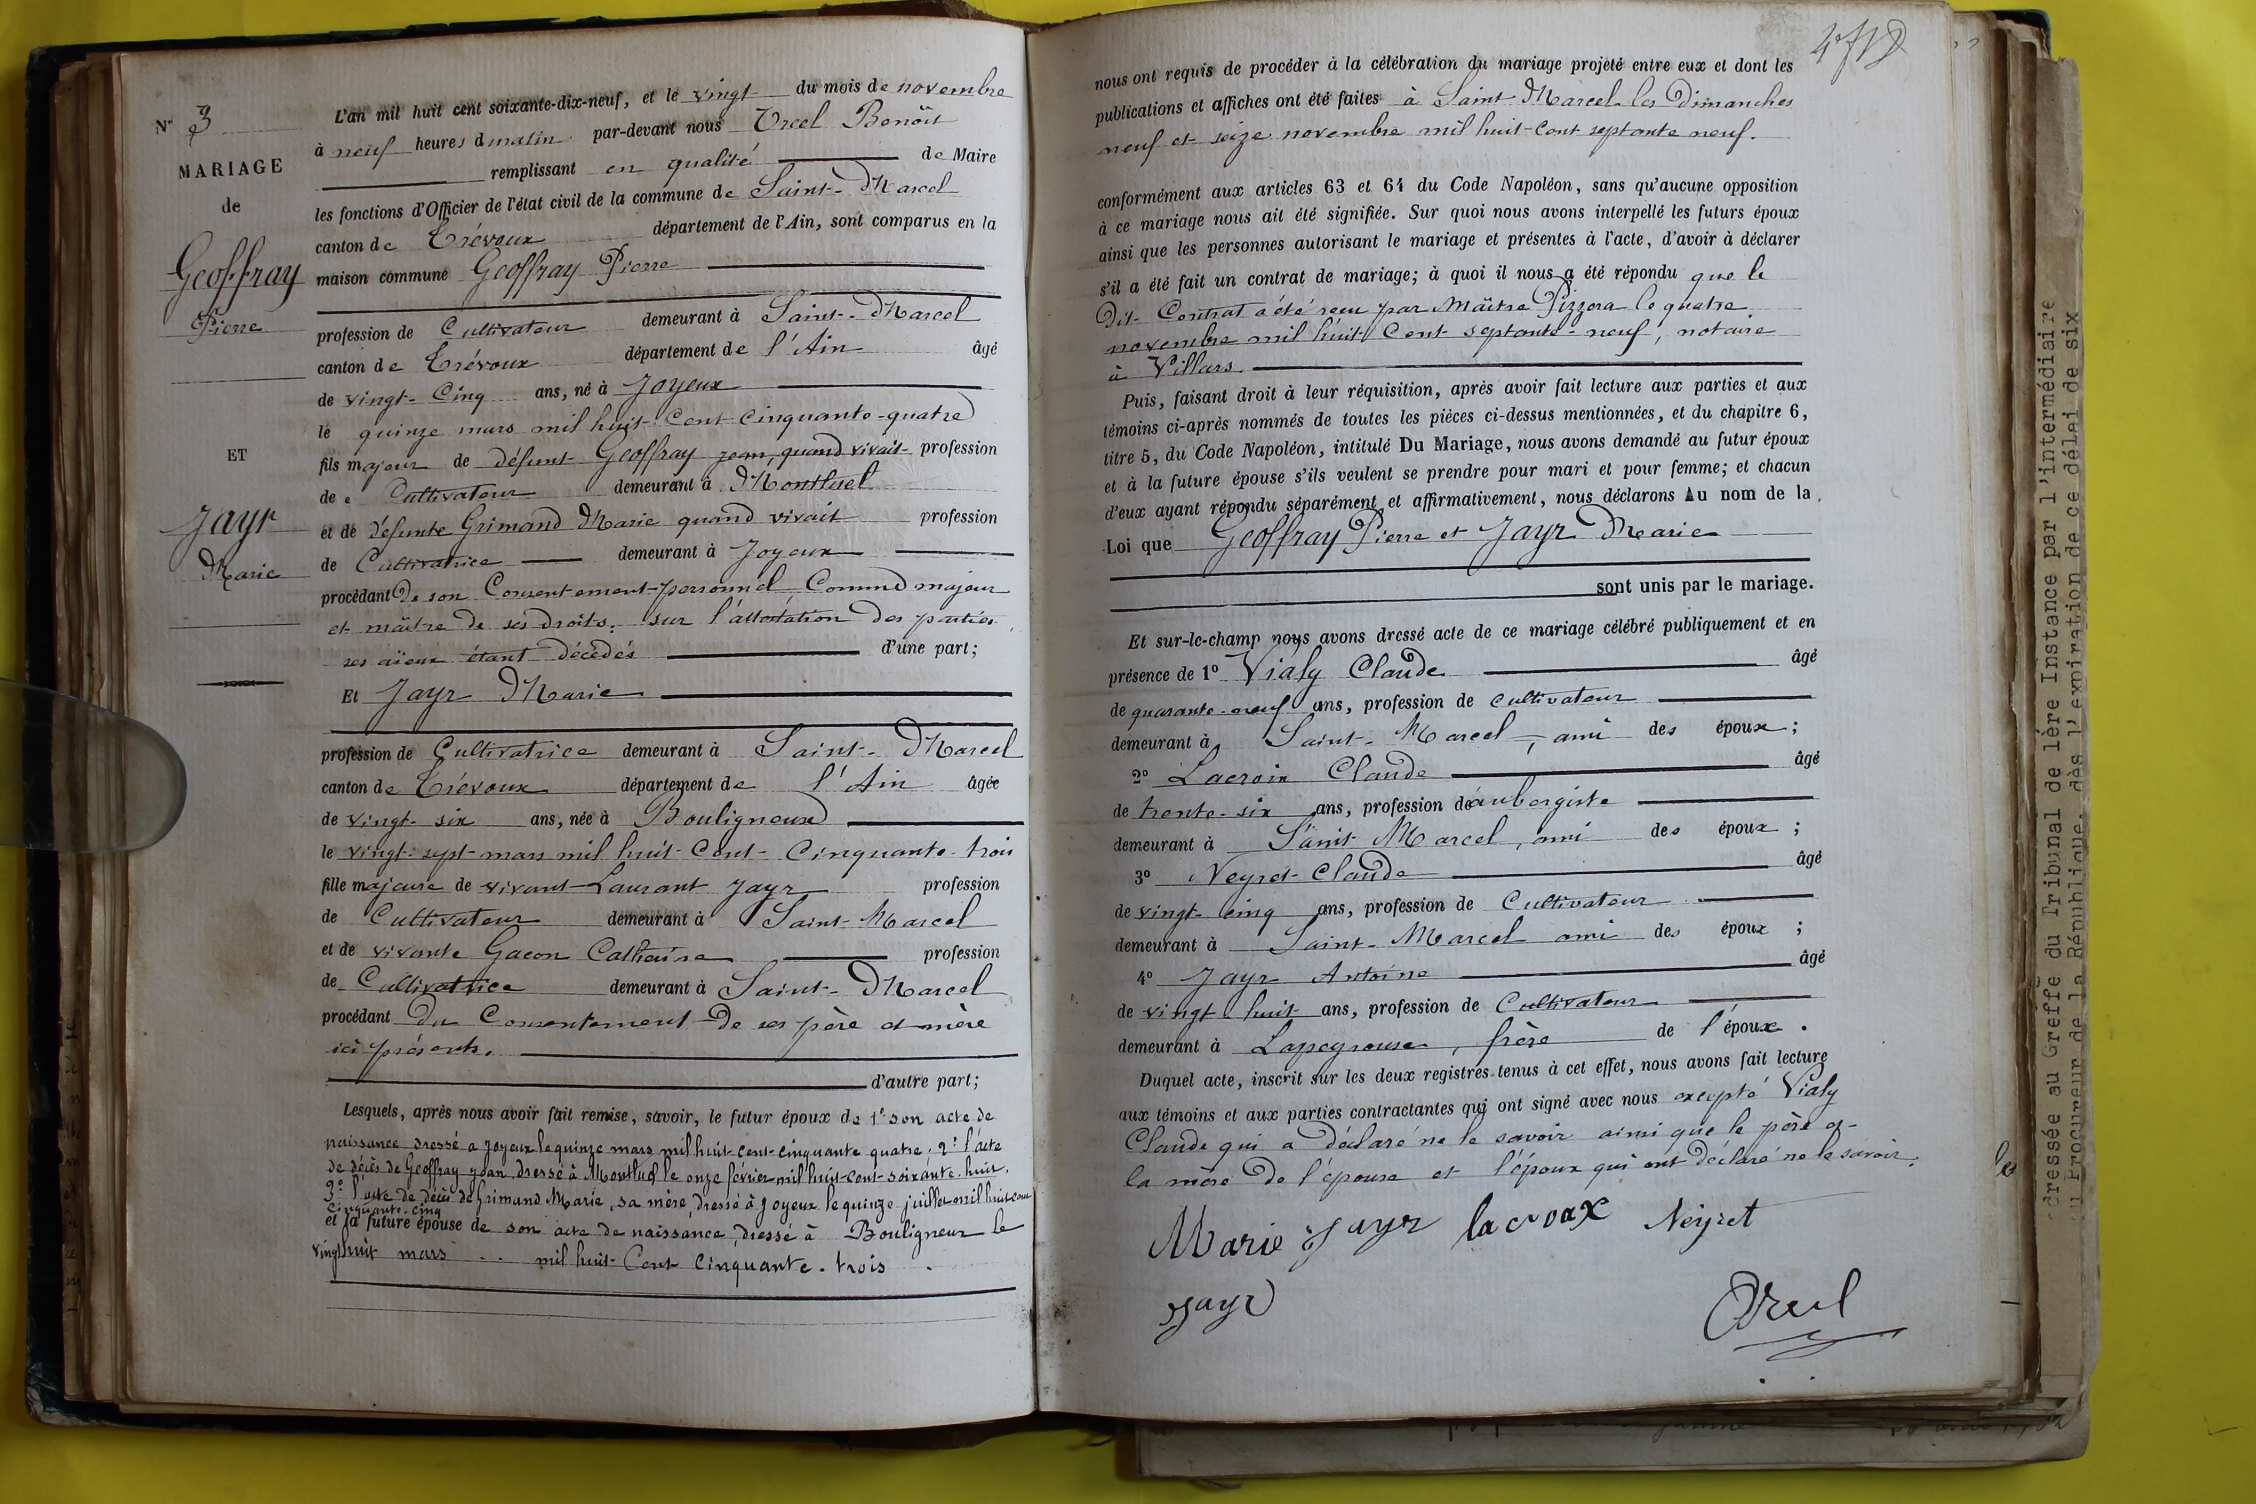 N° 3
MARIAGE
de
Geoffray
Pierre
ET
Jayr
Marie
L'an mil huit cent soixante-dix-neuf, et le vingt du mois de novembre
à neuf heures d matin par-devant nous Orcel Benoît
remplissant en qualité de Maire
les fonctions d'Officier de l'état civil de la commune de Saint-Marcel
canton de Trévoux département de l'Ain, sont comparus en la
maison commune Geoffray Pierre
profession de Cultivateur demeurant à Saint-Marcel
canton de Trévoux département de l'Ain âgé
de vingt-Cinq ans, né à Joyeux
le quinze mars mil huit-Cent Cinquante-quatre
fils majeur de défunt Geoffray Jean, quand vivait profession
de Cultivateur demeurant à Montluel
et de défunte Grimand Marie quand vivait profession
de Cultivatrice demeurant à Joyeux
procédant De son Consentement personnel Comme majeur
et maître de ses droits. sur l'attestation des parties
ses aïeux étant décédés d'une part;
Et Jayr Marie
profession de Cultivatrice demeurant à Saint-Marcel
canton de Trévoux département de l'Ain âgée
de vingt-six ans, née à Bouligneux
le vingt-sept mars mil huit-Cent-Cinquante-trois
fille majeure de vivant Laurant Jayr profession
de Cultivateur demeurant à Saint-Marcel
et de vivante Gacon Catherine profession
de Cultivatrice demeurant à Saint-Marcel
procédant Du Consentement De ses père et mère
ici présents.
d'autre part;
Lesquels, après nous avoir fait remise, savoir, le futur époux de 1° son acte de
naissance dressé a Joyeux le quinze mars mil huit-cent-cinquante quatre. 2° l'acte
de décès de Geoffray Jean, dressé à Montluel le onze février mil huit-cent-soixante-huit.
3° l'acte de décès de Grimand Marie, sa mère, dressé à Joyeux le quinze juillet mil huit cent
Cinquante-cinq
et la future épouse de son acte de naissance, dressé à Bouligneux le
vingt huit mars mil huit-Cent Cinquante-trois
nous ont requis de procéder à la célébration du mariage projeté entre eux et dont les
publications et affiches ont été faites à Saint-Marcel les Dimanches
neuf et seize novembre mil huit-Cent septante neuf.
conformément aux articles 63 et 64 du Code Napoléon, sans qu'aucune opposition
à ce mariage nous ait été signifiée. Sur quoi nous avons interpellé les futurs époux
ainsi que les personnes autorisant le mariage et présentes à l'acte, d'avoir à déclarer
s'il a été fait un contrat de mariage; à quoi il nous a été répondu que le
Dit Contrat a été reçu par Maître Pizzera le quatre
novembre mil huit Cent septante-neuf, notaire
à Villars.
Puis, faisant droit à leur réquisition, après avoir fait lecture aux parties et aux
témoins ci-après nommés de toutes les pièces ci-dessus mentionnées, et du chapitre 6,
titre 5, du Code Napoléon, intitulé Du Mariage, nous avons demandé au futur époux
et à la future épouse s'ils veulent se prendre pour mari et pour femme; et chacun
d'eux ayant répondu séparément et affirmativement, nous déclarons Au nom de la
Loi que Geoffray Pierre et Jayr Marie
sont unis par le mariage.
Et sur-le-champ nous avons dressé acte de ce mariage célébré publiquement et en
présence de 1° Vialy Claude âgé
de quarante-neuf ans, profession de cultivateur
demeurant à Saint-Marcel, ami des époux;
2° Lacroix Claude âgé
de trente-six ans, profession de aubergiste
demeurant à Saint Marcel, ami des époux;
3° Neyret Claude âgé
de vingt cinq ans, profession de Cultivateur
demeurant à Saint-Marcel ami des époux;
4° Jayr Antoine âgé
de vingt-huit ans, profession de Cultivateur
demeurant à Lapeyrouse, frère de l'épouse.
Duquel acte, inscrit sur les deux registres tenus à cet effet, nous avons fait lecture
aux témoins et aux parties contractantes qui ont signé avec nous excepté Vialy
Claude qui a déclaré ne le savoir ainsi que le père et
la mère de l'épouse et l'époux qui ont déclaré ne le savoir.
Marie Jayr lacroix Neyret
Jayr
Orcel
dressée au Greffe du Tribunal de 1ère Instance par l'intermédiaire
u Procureur de la République, dès l'expiration de ce délai de six